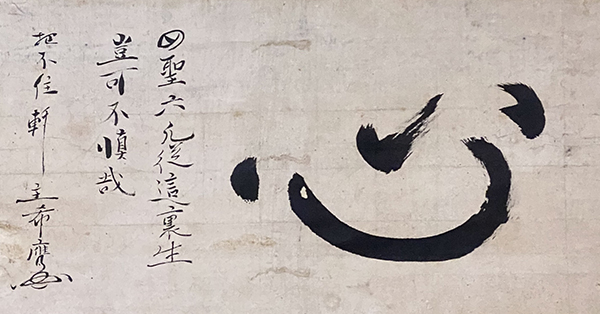 心
四聖六凡従這裏生
豈可不慎哉
把不住軒主希膺書